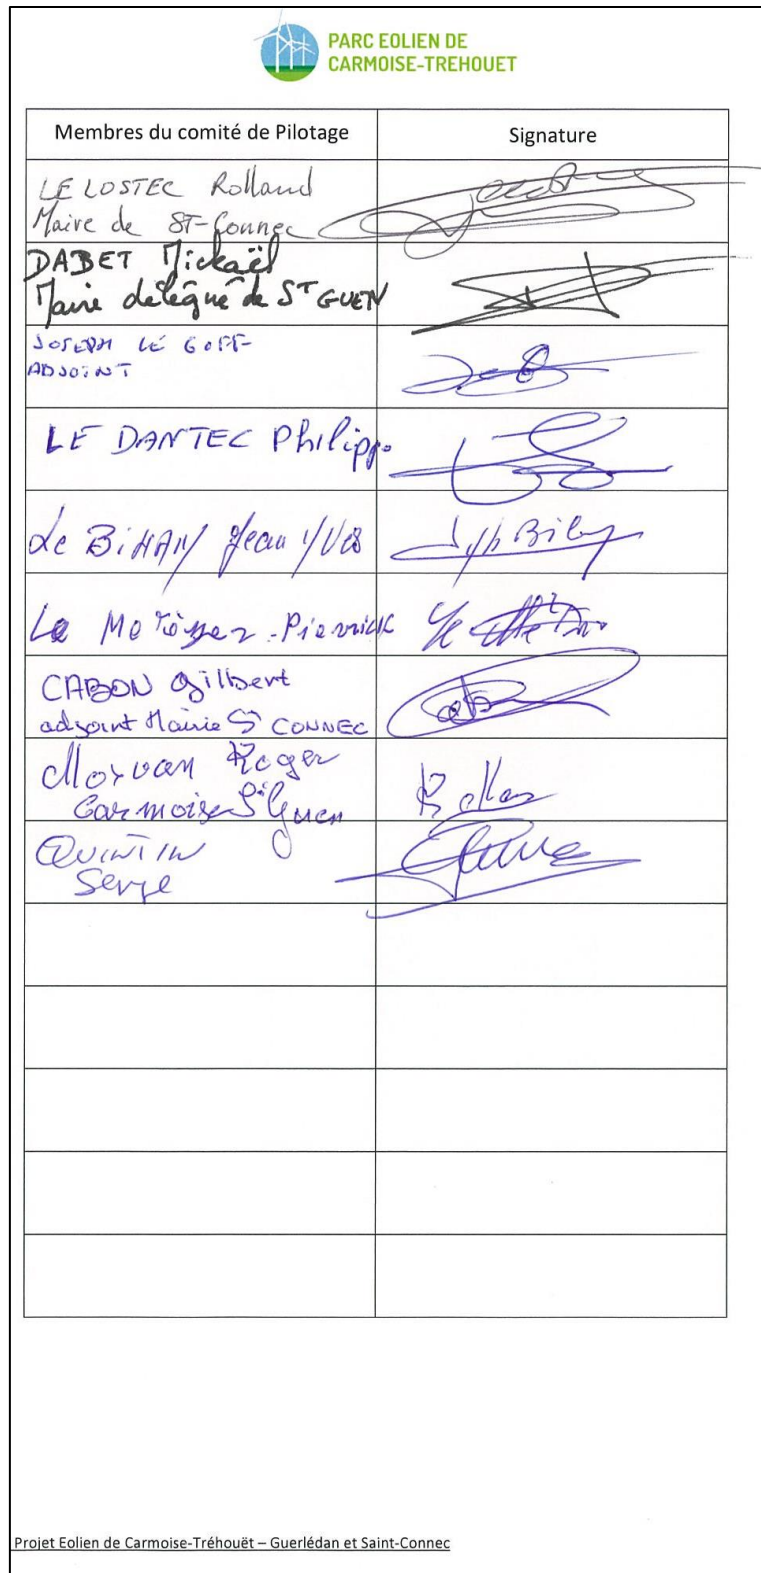 PARC EOLIEN DE
CARMOISE-TREHOUET
Membres du comité de Pilotage Signature
LE LOSTEC Rolland
Maire de ST-Connec
DABET Mickaël
Maire délégué de ST GUEN
JOSEPH LE GOFF
ADJOINT
LE DANTEC Philippe
Le BiHAN Jean Yves
Le Pierrick
CABON Gilbert
adjoint Mairie St CONNEC
Morvan Roger
Carmoise St Guen
QUINTIN
Serge
Projet Eolien de Carmoise-Tréhouët – Guerlédan et Saint-Connec